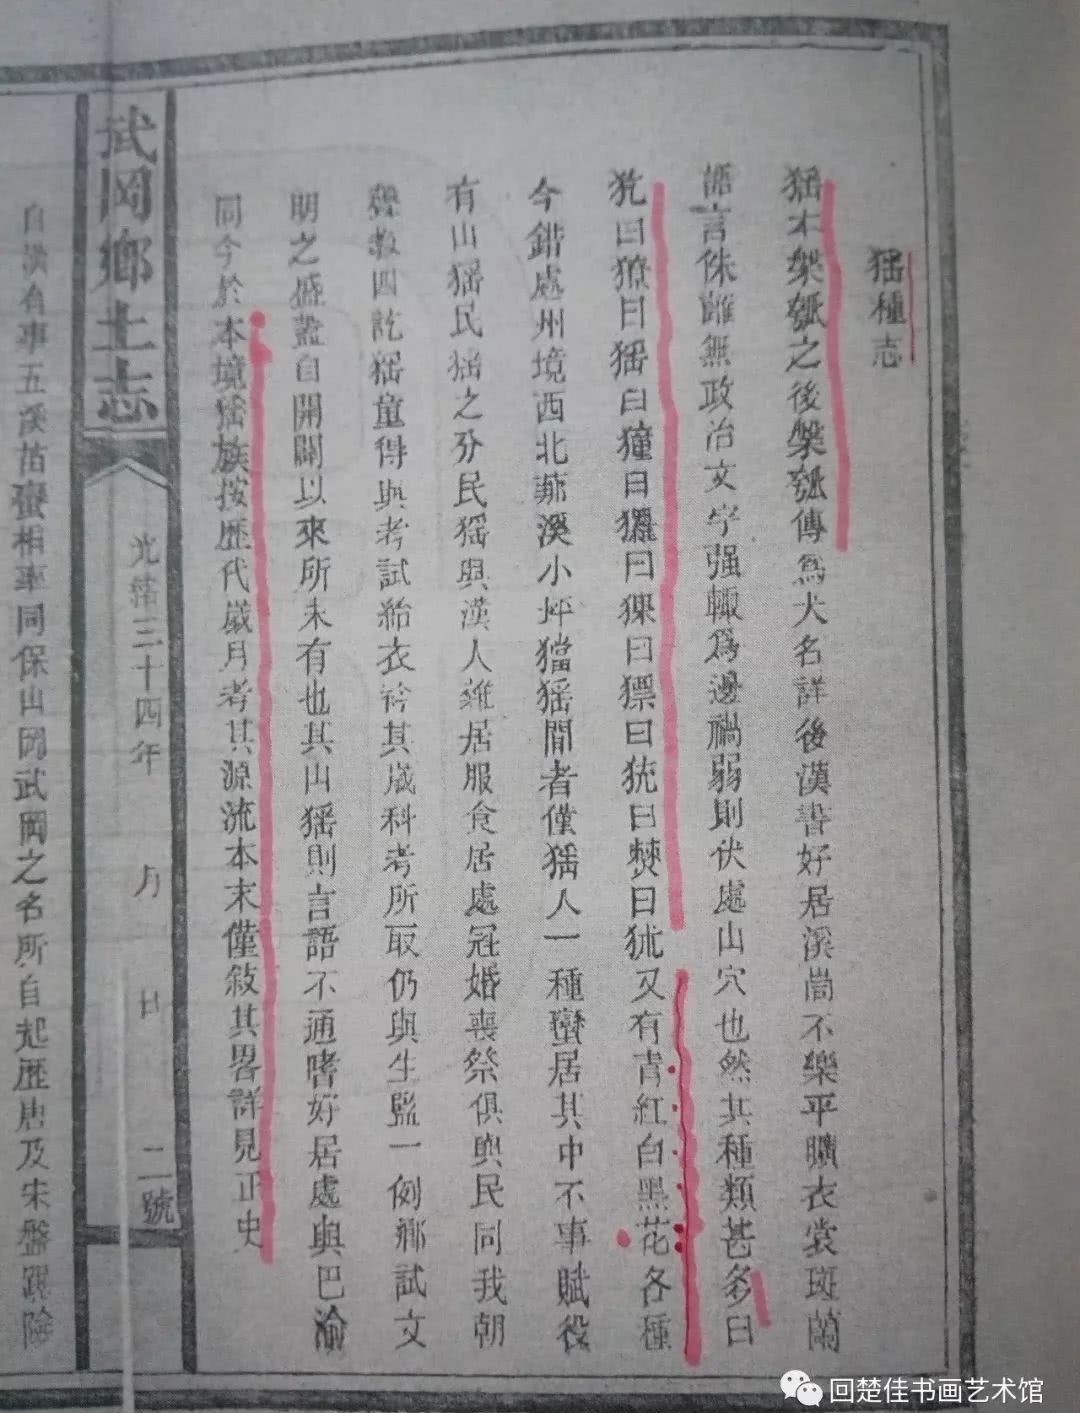 猺種志
猺本槃瓠之後槃瓠傳爲犬名詳後漢書好居溪峝不樂平曠衣裳斑蘭
語言侏離無政治文字强輙爲邊禍弱則伏處山穴也然其種類甚多曰
犹曰獠曰猺曰獞曰玀曰猓曰猓曰狫曰僰曰狖又有青紅白黑花各種
今錯處州境西北蓼溪小坪猺間者僅猺人一種蠻居其中不事賦役
有山猺民猺之分民猺與漢人雜居服食居處冠婚喪祭俱與民同我朝
聲教四訖猺童得與考試給衣衿其歲科考所取仍與生監一例鄉試文
明之盛葢自開闢以來所未有也其山猺則言語不通嗜好居處與巴渝
同今於本境猺族按歷代歲月考其源流本末僅敍其畧詳見正史
武岡鄉土志
光緒三十四年 月 日 二號
自漢有事五溪苗蠻相率同保山岡武岡之名所自起歷唐及宋盤踞險
回楚佳书画艺术馆